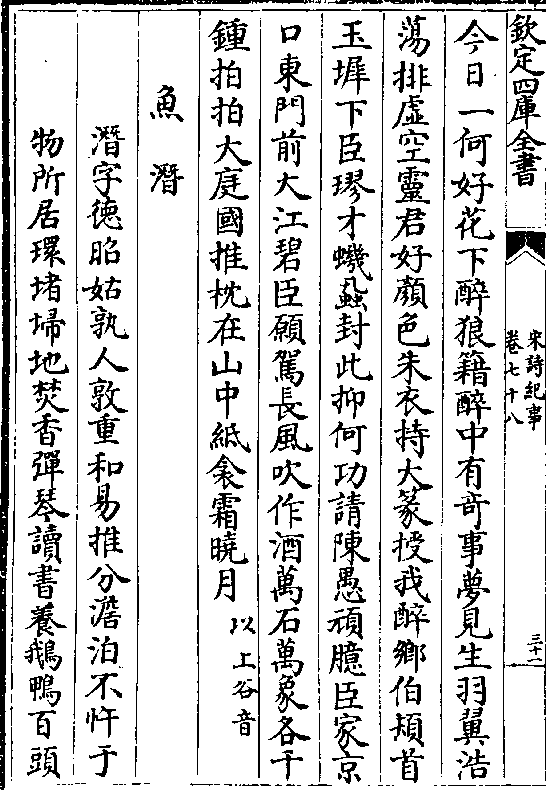 欽定四庫全書
宋詩紀事
卷七十八
三十二
今日一何好花下醉狼籍醉中有奇事夢見生羽翼浩
蕩排虛空靈君好顔色朱衣持大篆授我醉鄉伯頰首
玉墀下臣璆才蟣蝨封此抑何功請陳愚頑臆臣家京
口東門前大江碧臣願駕長風吹作酒萬石萬象各千
鍾拍拍大庭國推枕在山中紙衾霜曉月
以上谷音
魚潛
潛字德昭姑孰人敦重和易推分澹泊不忤于
物所居環堵埽地焚香彈琴讀書養鵝鴨百頭